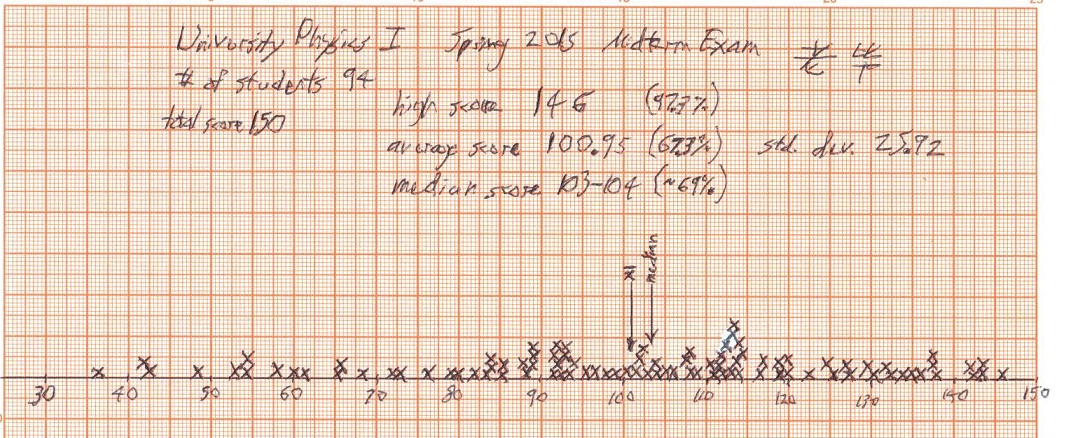 University Physics I Spring 2015 Midterm Exam
# of students 94
total score 150
high score 146 (97.3%)
average score 100.95 (67.3%) std. dev. 25.92
median score 103-104 (~69%)
x̄ median
30 40 50 60 70 80 90 100 110 120 130 140 150